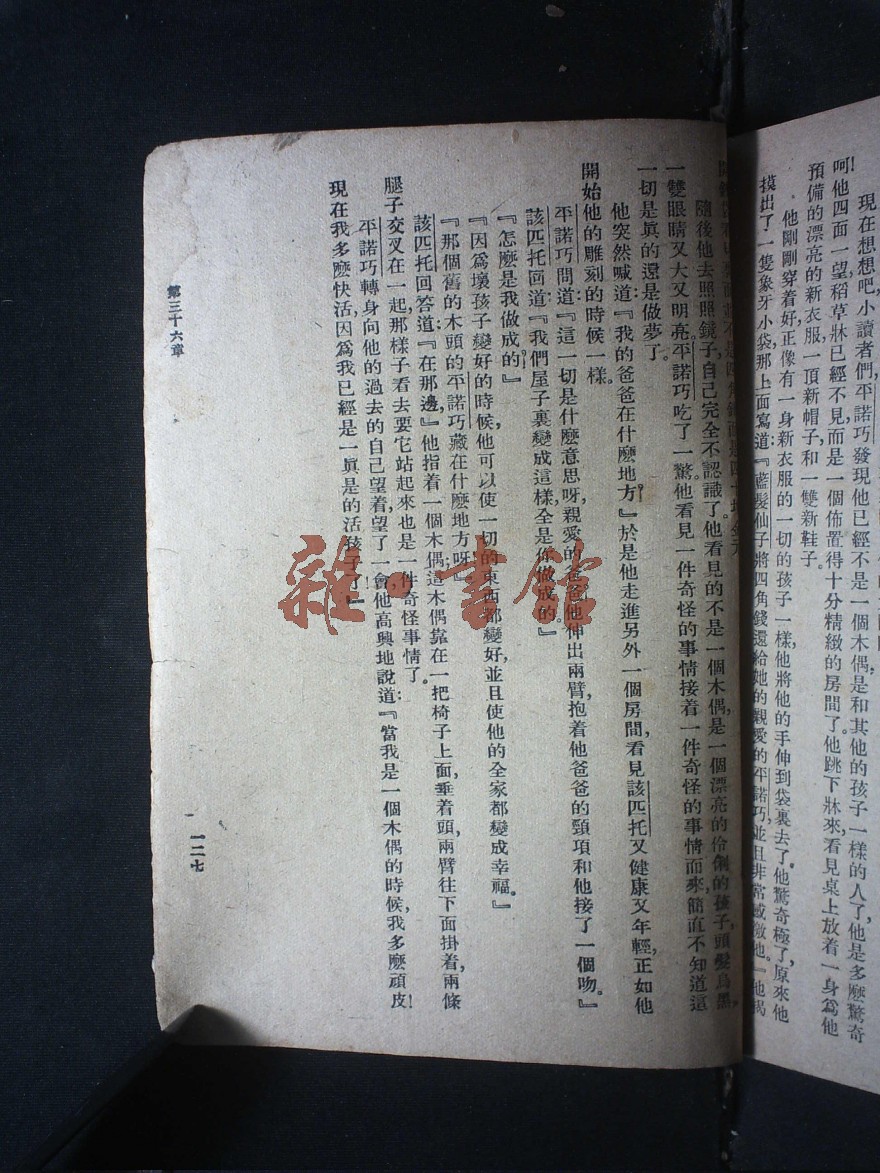 現在想想吧,小讀者們,平諾巧發現他已經不是一個木偶,是和其他的孩子一樣的人了,他是多麽驚奇
呵!他四面一望,稻草牀已經不見,而是一個佈置得十分精緻的房間了。他跳下牀來,看見桌上放着一身爲他
預備的漂亮的新衣服,一頂新帽子,和一雙新鞋子。
他剛剛穿着好,正像有一身新衣服的一切的孩子一樣,他將他的手伸到袋裏去了。他驚奇極了,原來他
摸出了一隻象牙小袋,那上面寫道:『藍髮仙子將四角錢還給她的親愛的平諾巧,並且非常感激他。』他揭
隨後他去照照鏡子,自己完全不認識了。他看見的不是一個木偶,是一個漂亮的伶俐的孩子,頭髮烏黑,
一雙眼睛又大又明亮。平諾巧吃了一驚。他看見一件奇怪的事情接着一件奇怪的事情而來,簡直不知道這
一切是眞的還是做夢了。
他突然喊道:『我的爸爸在什麽地方?』於是他走進另外一個房間,看見該匹托又健康又年輕,正如他
開始他的雕刻的時候一樣。
平諾巧問道:『這一切是什麽意思呀,親愛的爸爸?』他伸出兩臂,抱着他爸爸的頸項和他接了一個吻。』
該匹托回道:『我們屋子裏變成這樣,全是你做成的。』
『怎麽是我做成的?』
『因爲壞孩子變好的時候,他可以使一切的東西都變好,並且使他的全家都變成幸福。』
『那個舊的木頭的平諾巧藏在什麽地方呀?』
該匹托回答道:『在那邊,』他指着一個木偶,這木偶靠在一把椅子上面,垂着頭,兩臂往下面掛着,兩條
腿子交叉在一起,那樣子看去要它站起來也是一件奇怪事情了。
平諾巧轉身向他的過去的自己望着,望了一會,他高興地說道:『當我是一個木偶的時候,我多麽頑皮!
現在我多麽快活,因爲我已經是一眞是的活孩子了!』
第三十六章
一二七
雜·書館